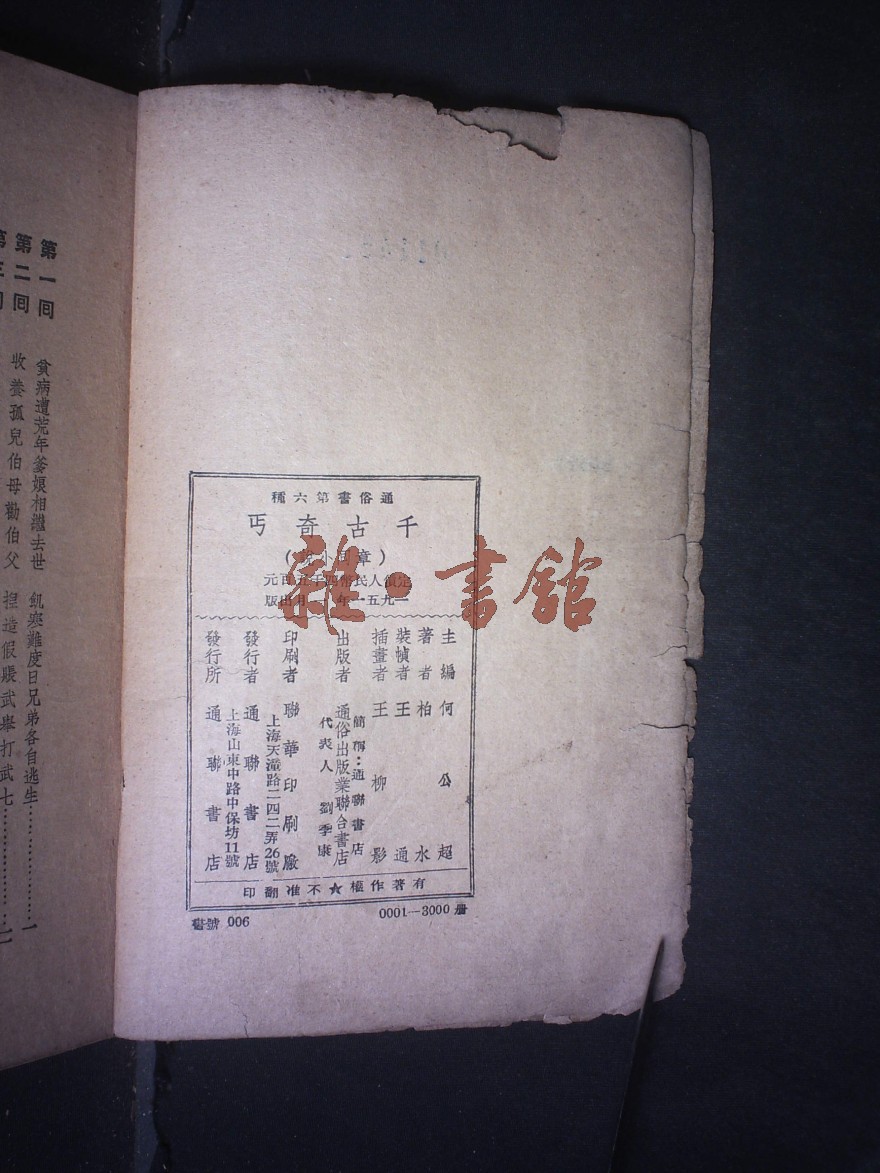 通俗書第六種
千古奇丐
(章回小說)
定價人民幣四千五百元
一九五一年 月出版
主編 何公超
著者 柏水
裝幀者 王通
插畫者 王柳影
出版者 通俗出版業聯合書店
簡稱：通聯書店
代表人 劉季康
印刷者 聯華印刷廠
上海天潼路二四二弄26號
發行者 通聯書店
上海山東中路中保坊11號
發行所 通聯書店
有著作權★不准翻印
書號 006
0001—3000册
第一囘 貧病遭荒年爹娘相繼去世 飢寒難度日兄弟各自逃生…………一
第二囘 收養孤兒伯母勸伯父 捏造假賬武舉打武七…………
雜·書館